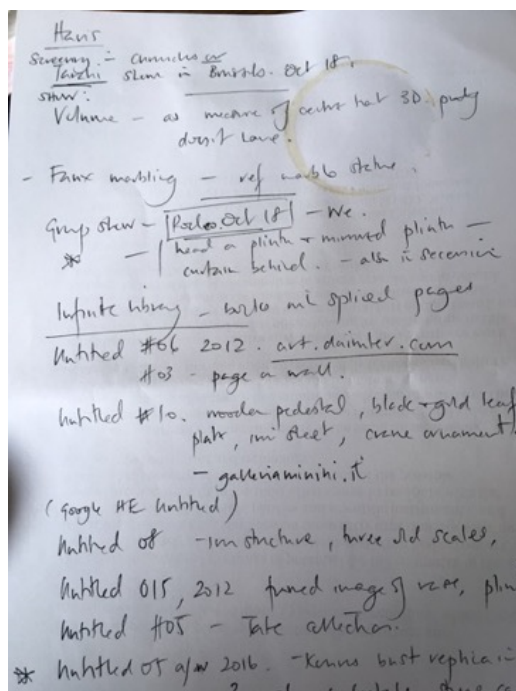 Haris
show in Brussels. Oct 18.
show:
Volume - as measure of that 3D
doesn't have.
- Faux marbling - ref marble statue.
Group show - Rodeo. Oct 18 - We.
* - head on plinth + mirrored plinth -
curtain behind. - also in secession
Infinite Library - books w/ spliced pages
Untitled #06 2012. art.daimler.com
#03 - page on wall.
Untitled #10. wooden pedestal, black + gold leaf
plate, iron sheet, crane ornament
- galleriaminini.it
(Google HE Untitled)
Untitled 08 - iron structure, three old scales,
Untitled 015, 2012 framed image of vase, plin
Untitled #05 - Tate collection.
* Untitled 05 a/w 2016. - Kouros bust replica in